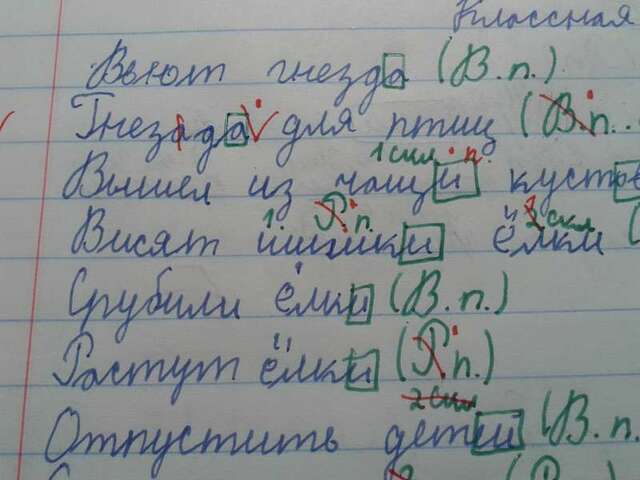 Классная
Вьют гнезда (В.п.)
Гнезда для птиц (В.п.
1 скл. п.
Вышел из чащи кустов
1. Р.п. 2 скл
Висят шишки ёлки (
Срубили ёлки (В.п.)
Растут ёлки (Р.п.)
2 скл
Отпустить детей (В.п.